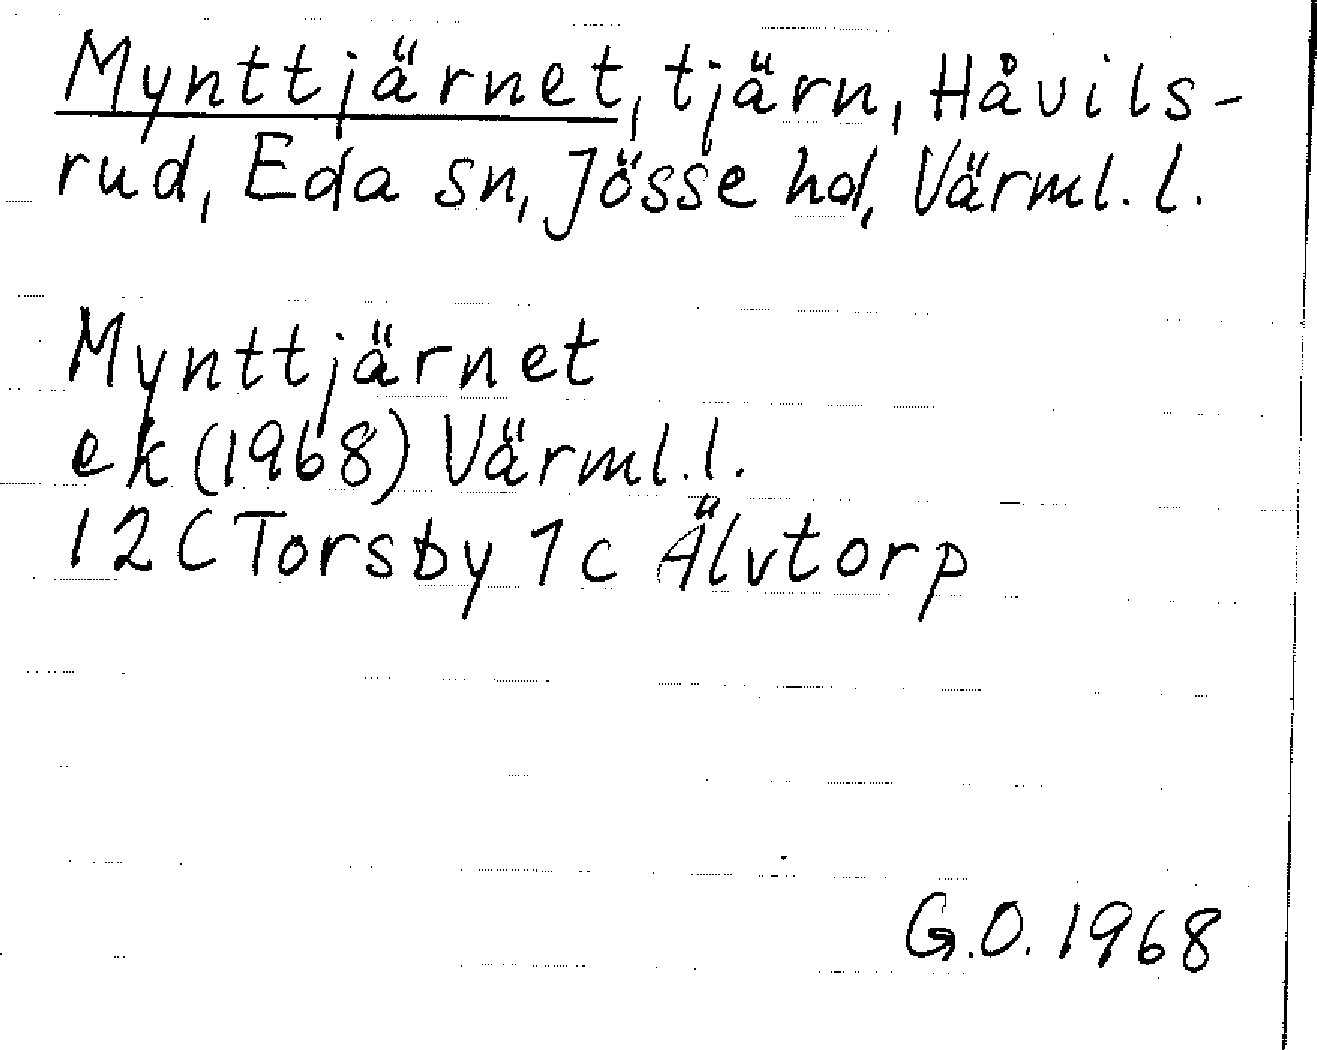 Mynttjärnet, tjärn, Håvils-
rud, Eda sn, Jösse hd, Värml. l.
Mynttjärnet
ek (1968) Värml. l.
12 C Torsby 1c Älvtorp
G.O. 1968